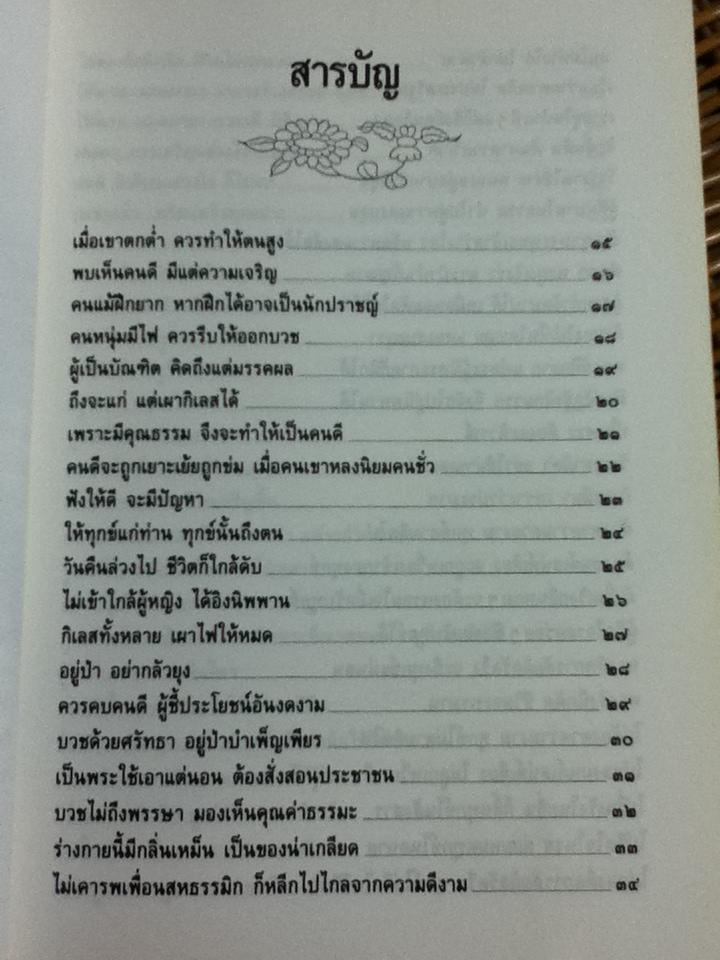 สารบัญ
เมื่อเขาตกต่ำ ควรทำให้ตนสูง ๑๕
พบเห็นคนดี มีแต่ความเจริญ ๑๖
คนแม้ฝึกยาก หากฝึกได้อาจเป็นนักปราชญ์ ๑๗
คนหนุ่มมีไฟ ควรรีบให้ออกบวช ๑๘
ผู้เป็นบัณฑิต คิดถึงแต่มรรคผล ๑๙
ถึงจะแก่ แต่เผากิเลสได้ ๒๐
เพราะมีคุณธรรม จึงจะทำให้เป็นคนดี ๒๑
คนดีจะถูกเยาะเย้ยถูกข่ม เมื่อคนเขาหลงนิยมคนชั่ว ๒๒
ฟังให้ดี จะมีปัญหา ๒๓
ให้ทุกข์แก่ท่าน ทุกข์นั้นถึงตน ๒๔
วันคืนล่วงไป ชีวิตก็ใกล้ดับ ๒๕
ไม่เข้าใกล้ผู้หญิง ได้อิงนิพพาน ๒๖
กิเลสทั้งหลาย เผาไฟให้หมด ๒๗
อยู่ป่า อย่ากลัวยุง ๒๘
ควรคบคนดี ผู้ชี้ประโยชน์อันงดงาม ๒๙
บวชด้วยศรัทธา อยู่ป่าบำเพ็ญเพียร ๓๐
เป็นพระใช้เอาแต่นอน ต้องสั่งสอนประชาชน ๓๑
บวชไม่ถึงพรรษา มองเห็นคุณค่าธรรมะ ๓๒
ร่างกายนี้มีกลิ่นเหม็น เป็นของน่าเกลียด ๓๓
ไม่เคารพเพื่อนสหธรรมิก ก็หลีกไปไกลจากความดีงาม ๓๔